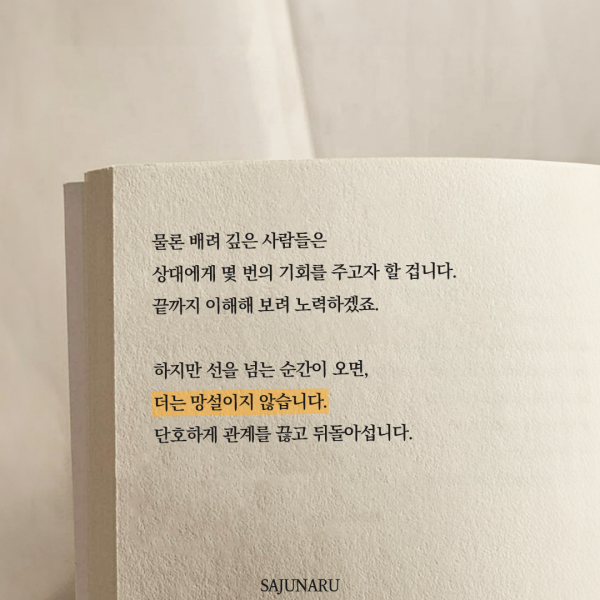 물론 배려 깊은 사람들은
상대에게 몇 번의 기회를 주고자 할 겁니다.
끝까지 이해해 보려 노력하겠죠.
하지만 선을 넘는 순간이 오면,
더는 망설이지 않습니다.
단호하게 관계를 끊고 뒤돌아섭니다.
SAJUNARU